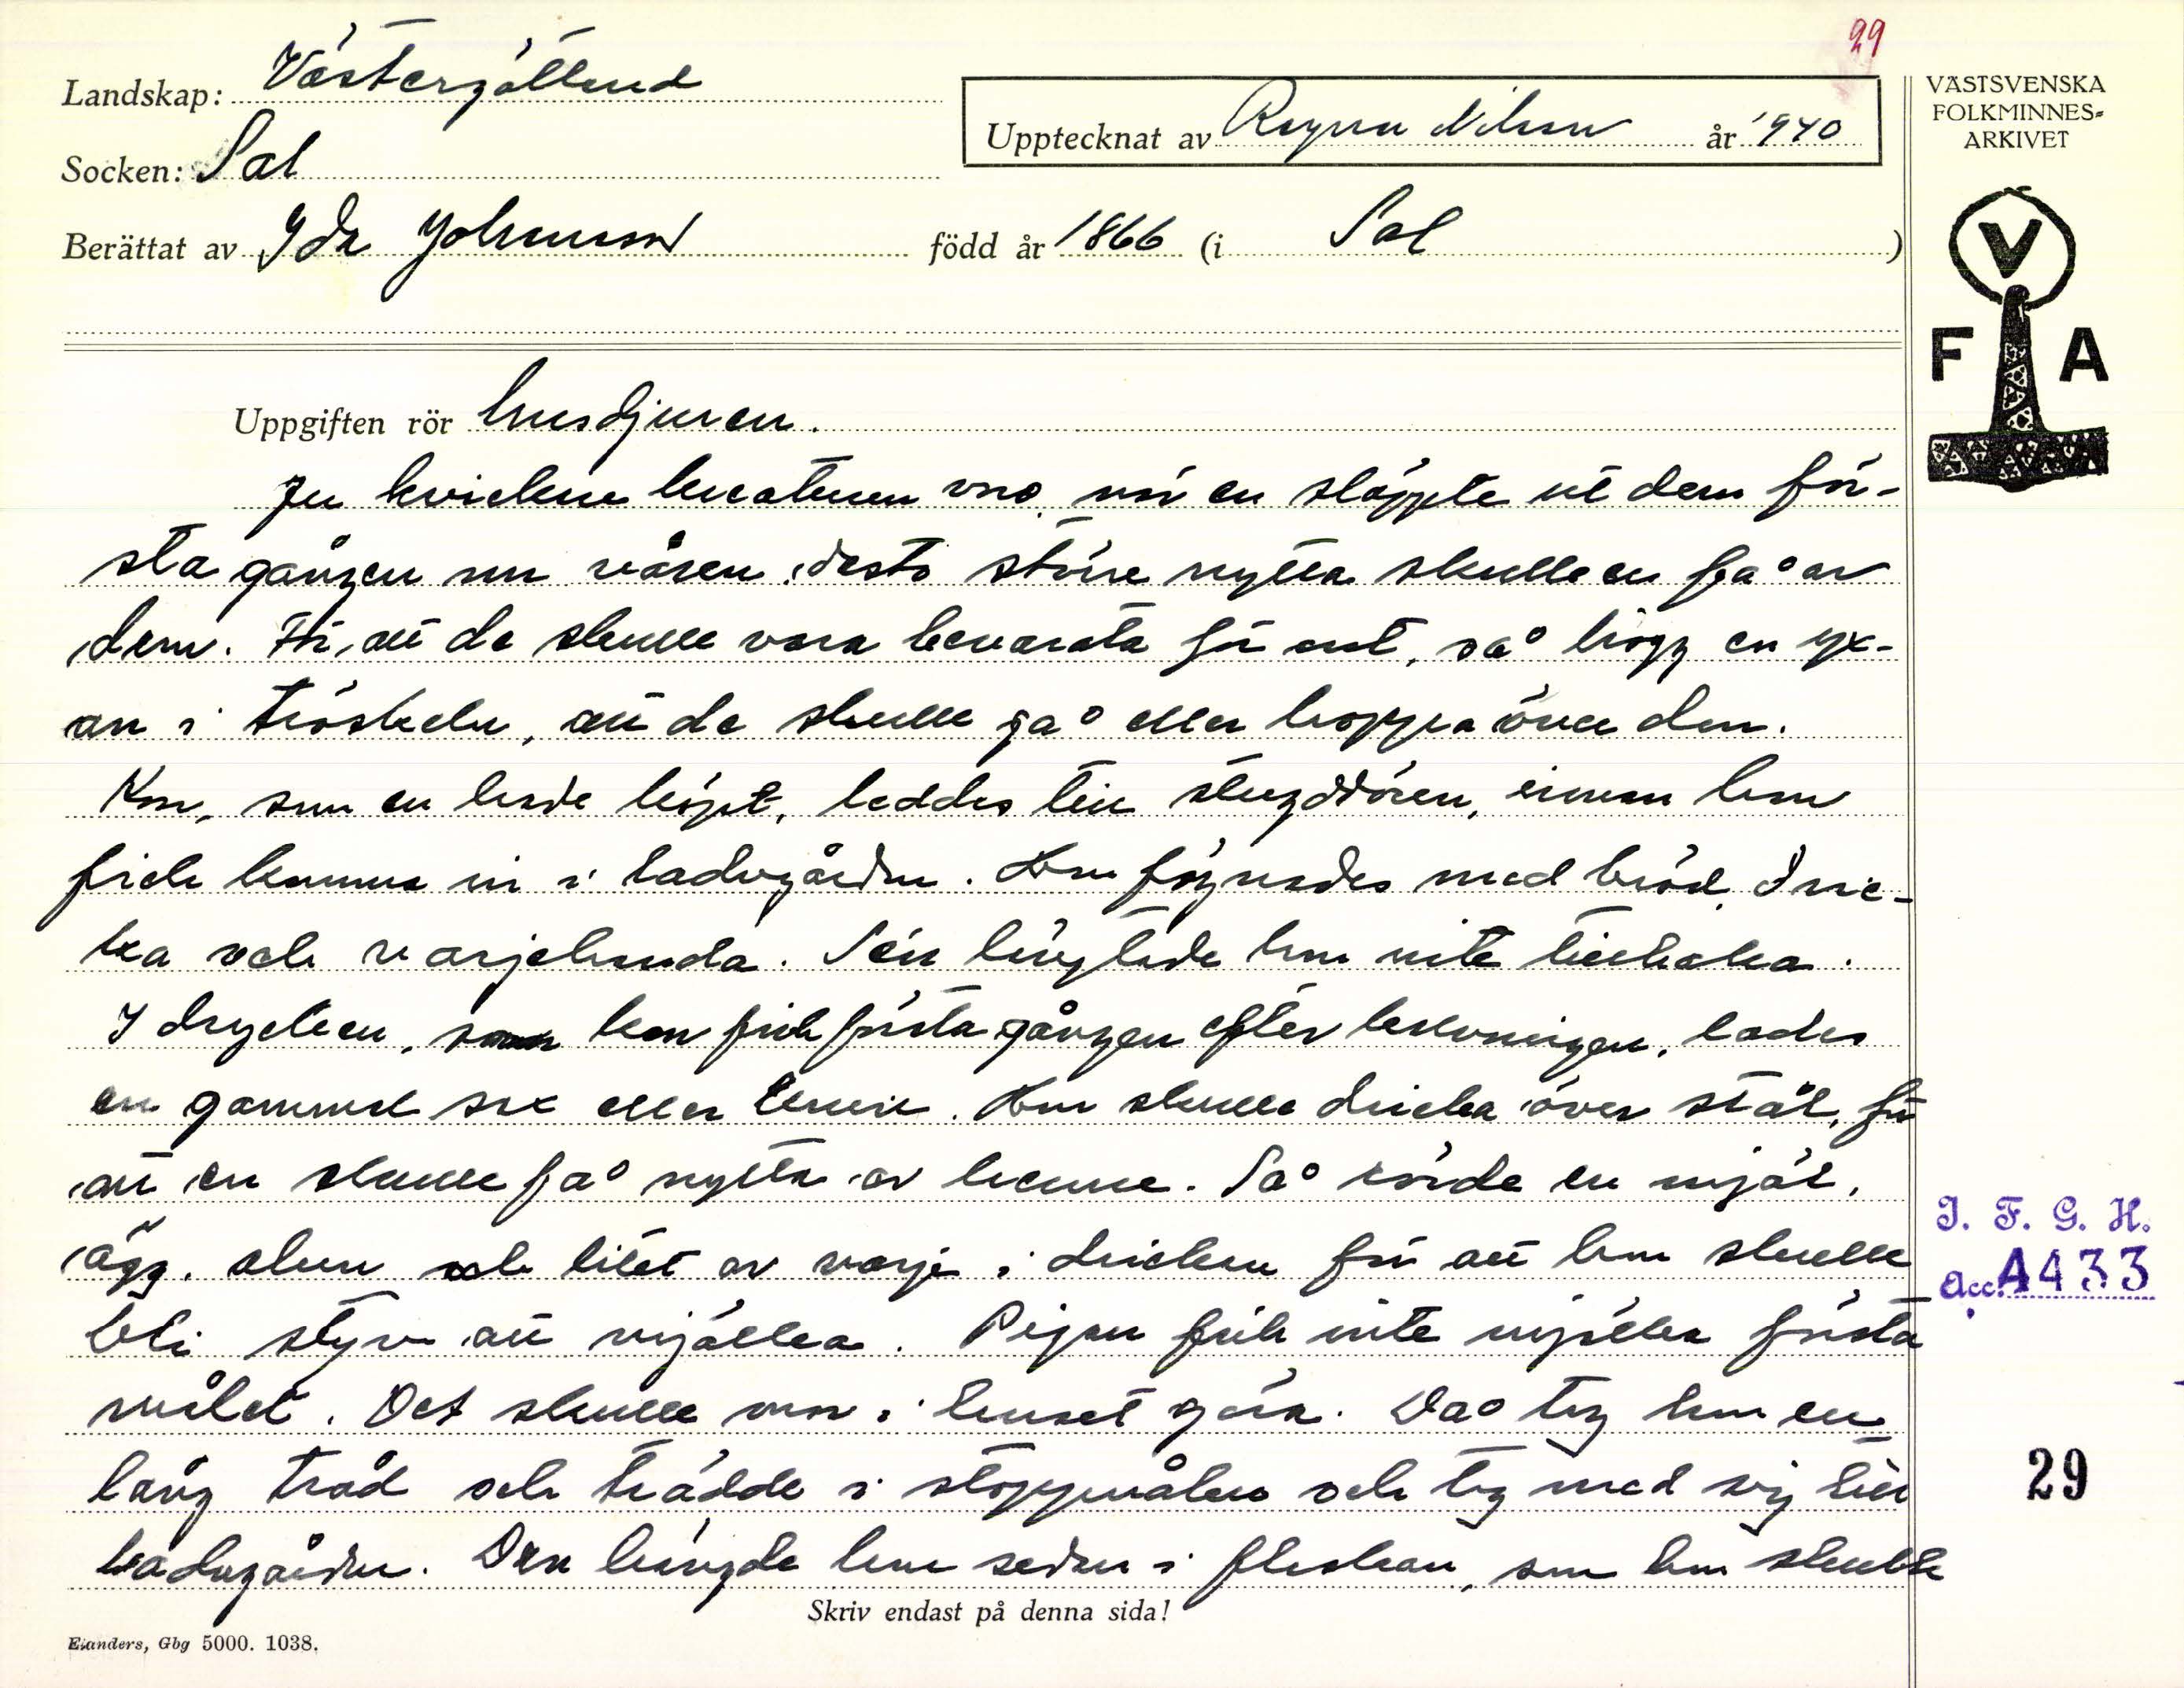 29
Landskap: Västergötland
Upptecknat av Ragnar Nilsson år 1940
VÄSTSVENSKA
FOLKMINNES-
ARKIVET
Socken: Sal
Berättat av Ida Johansson född år 1866 (i Sal)
V
F A
Uppgiften rör husdjuren.
Ju kvickare kreaturen var, när en släppte ut dem för-
sta gången om våren, desto större nytta skulle en få av
dem. För att de skulle vara bevarata för ont, så högg en yx-
an i tröskeln, att de skulle gå eller hoppa över den.
Kon, som en hade köpt, leddes till stugdören, innan hon
fick komma in i ladugården. Hon fägnades med bröd, dric-
ka och varjehanda. Sen längtade hon inte tillbaka.
I drycken, som kon fick första gången efter kalvningen, lades
en gammal sax eller kniv. Hon skulle dricka över stål, för
att en skulle få nytta av henne. Så rörde en mjöl,
ägg, alun och litet av varje i drickan för att hon skulle
bli styv att mjölka. Pigan fick inte mjölka första
målet. Det skulle mor i huset göra. Då tog hon en
lång tråd och trädde i stoppnålen och tog med sig till
ladugården. Den hängde hon sedan i flaskan, som hon skulle
Skriv endast på denna sida!
Elanders, Gbg 5000. 1038.
I. F. G. H.
Acc. 4433
29